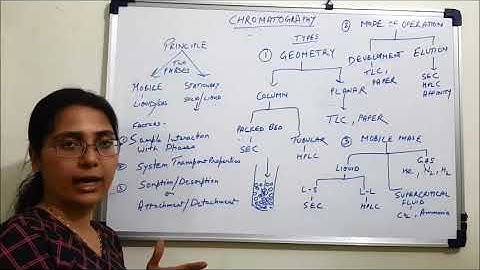 CHROMATOGRAPHY
TYPES
PRINCIPLE
TWO PHASES
MOBILE
LIQUID/GAS
STATIONARY
SOLID/LIQUID
FACTORS-
① Sample Interaction
With Phases
② System Transport Properties
③ Sorption/Desorption
Attachment/Detachment
① GEOMETRY
COLUMN
PLANAR
PACKED BED
SEC
TUBULAR
HPLC
TLC, PAPER
② MODE OF OPERATION
DEVELOPMENT
TLC,
PAPER
ELUTION
SEC
HPLC
AFFINITY
③ MOBILE PHASE
LIQUID
L-S
SEC
L-L
HPLC
GAS
He, N₂, H₂
SUPERCRITICAL
FLUID
, Ammonia